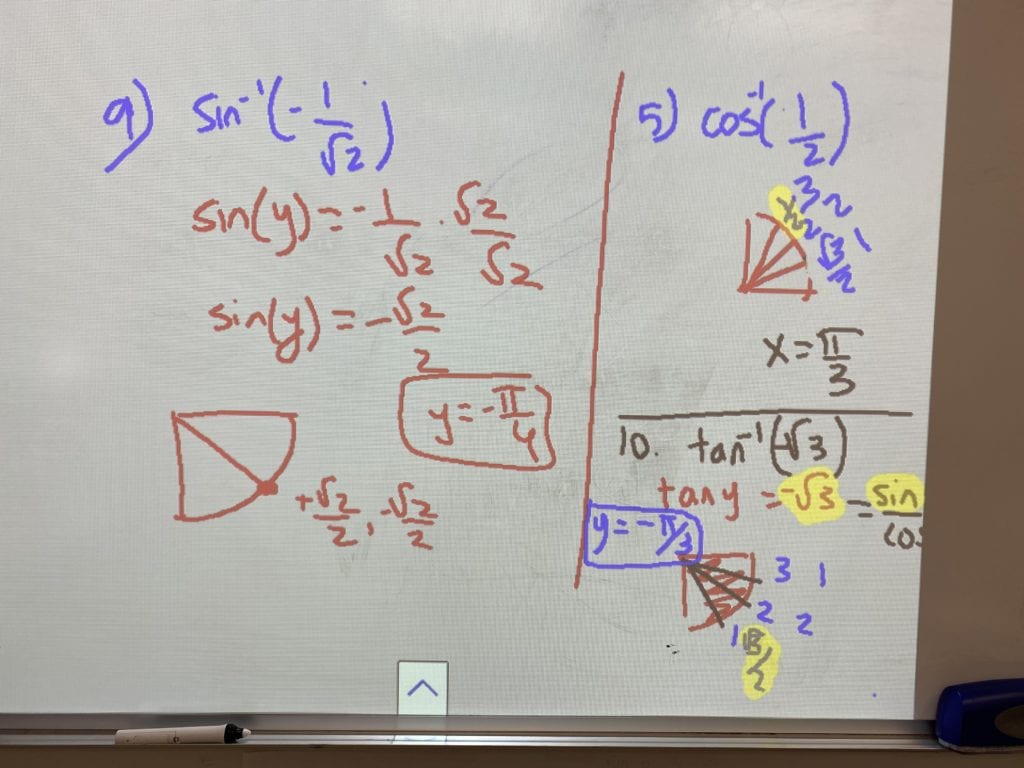 9) sin⁻¹(-1/√2)
sin(y) = -1/√2 · √2/√2
sin(y) = -√2/2
y = -π/4
+√2/2, -√2/2
5) cos⁻¹(1/2)
3 2
2
√3/2 1
x = π/3
10. tan⁻¹(-√3)
tan y = -√3 = sin/cos
y = -π/3
3 1
2 2
1 √3/2